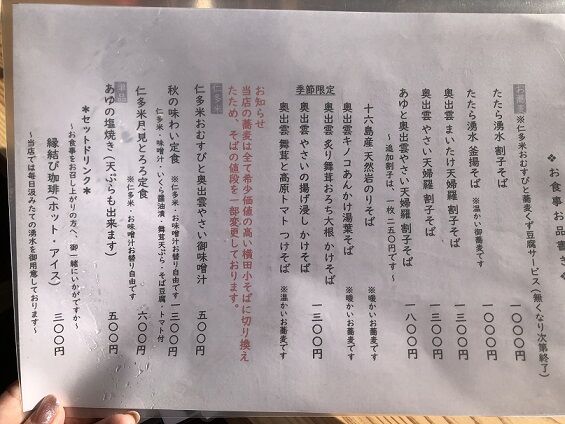 ❖お食事お品書き❖
お蕎麦 ※仁多米おむすびと蕎麦くず豆腐サービス(無くなり次第終了)
たたら湧水 割子そば 一〇〇〇円
たたら湧水 釜揚そば ※温かい御蕎麦です 一〇〇〇円
奥出雲 まいたけ天婦羅 割子そば 一三〇〇円
奥出雲 やさい天婦羅 割子そば 一三〇〇円
あゆと奥出雲やさい天婦羅 割子そば 一八〇〇円
～追加割子は、一枚二五〇円です～
十六島産 天然岩のりそば ※暖かいお蕎麦です
季節限定
奥出雲キノコあんかけ湯葉そば ※暖かいお蕎麦です
奥出雲 炙り舞茸おろち大根 かけそば 一三〇〇円
奥出雲 やさいの揚げ浸し かけそば
奥出雲 舞茸と高原トマト つけそば ※温かいお蕎麦です
お知らせ
当店の蕎麦は全て希少価値の高い横田小そばに切り換え
たため、そばの値段を一部変更しております。
仁多米
仁多米おむすびと奥出雲やさい御味噌汁 五〇〇円
秋の味わい定食 ※仁多米・お味噌汁お替り自由です 一三〇〇円
仁多米・味噌汁・いくら醤油漬・舞茸天ぷら・そば豆腐、トマト付
仁多米月見とろろ定食 ※仁多米・お味噌汁お替り自由です 六〇〇円
単品
あゆの塩焼き(天ぷらも出来ます) 五〇〇円
＊セットドリンク＊
～お食事をお召し上がりの方へ、御一緒にいかがですか～
縁結び珈琲(ホット・アイス) 三〇〇円
～当店では毎日汲みたての湧水を御用意しております～